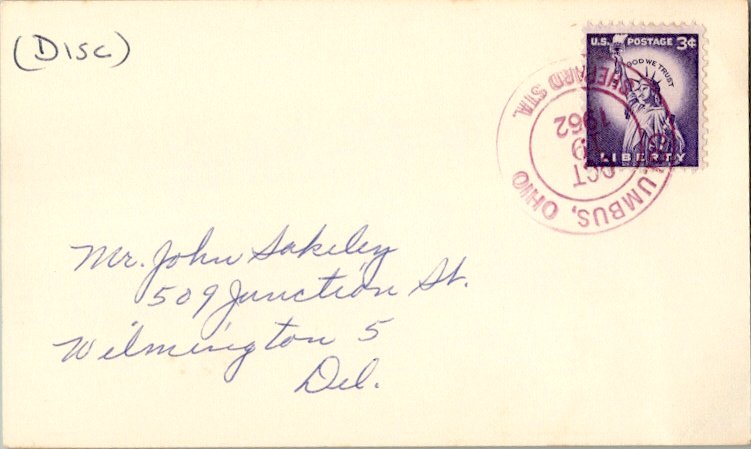 (Disc)
U.S. POSTAGE 3¢
IN GOD WE TRUST
LIBERTY
COLUMBUS, OHIO
SHEPARD STA.
OCT
19
1962
Mr. John Sakeley
509 Junction St.
Wilmington 5
Del.